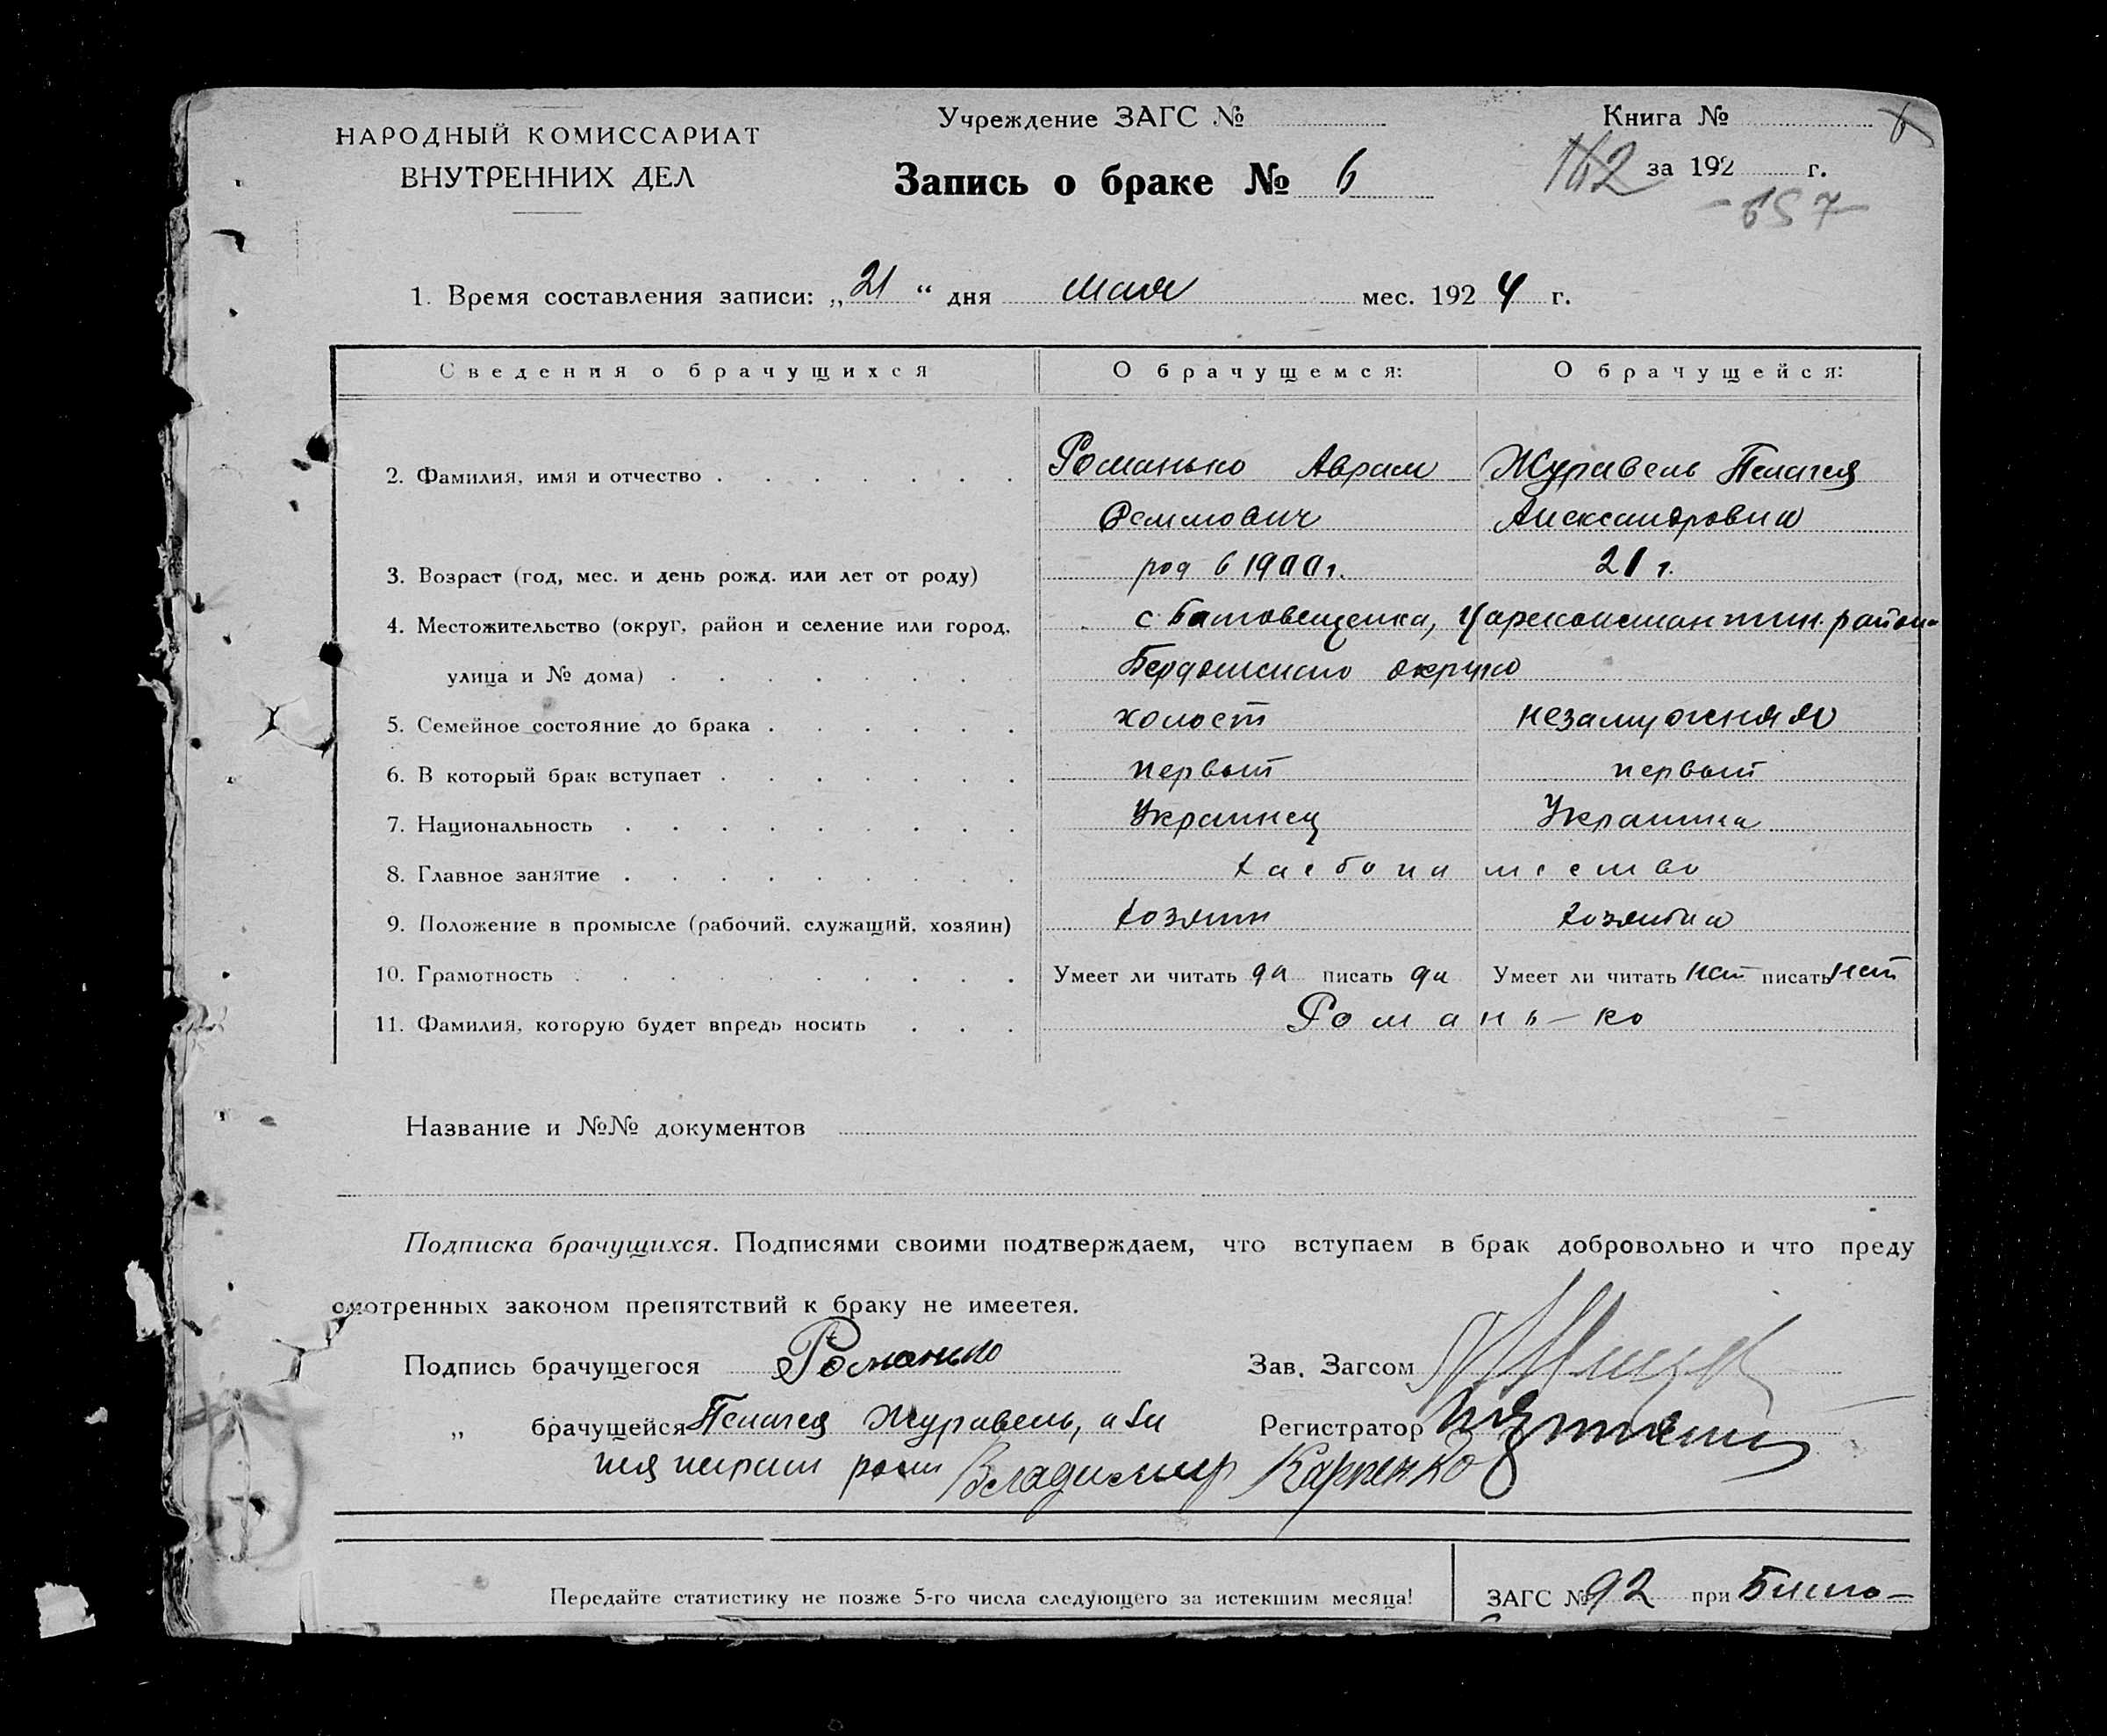 НАРОДНЫЙ КОМИССАРИАТ
ВНУТРЕННИХ ДЕЛ
Учреждение ЗАГС №
Книга №
6
Запись о браке № 6
162 за 192 г.
-657-
1. Время составления записи: „21“ дня мая мес. 1924 г.
Сведения о брачущихся О брачущемся: О брачущейся:
2. Фамилия, имя и отчество Романько Аврам Журавель Пелагея
Александровна
3. Возраст (год, мес. и день рожд. или лет от роду) род в 1900 г. 21 г.
4. Местожительство (округ, район и селение или город, с. Цареконстантин. район
улица и № дома) Бердянского округа
5. Семейное состояние до брака холост незамужняя
6. В который брак вступает первый первый
7. Национальность Украинец Украинка
8. Главное занятие хлебопашество
9. Положение в промысле (рабочий, служащий, хозяин) хозяин хозяйка
10. Грамотность Умеет ли читать да писать да Умеет ли читать нет писать нет
11. Фамилия, которую будет впредь носить Романь-ко
Название и №№ документов
Подписка брачущихся. Подписями своими подтверждаем, что вступаем в брак добровольно и что преду
смотренных законом препятствий к браку не имеетея.
Подпись брачущегося Романько Зав. Загсом
„ брачущейся Пелагея Журавель, а за Регистратор
Владимир Карпенко
Передайте статистику не позже 5-го числа следующего за истекшим месяца!
ЗАГС № 92 при